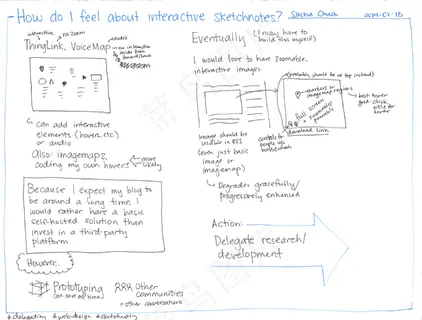 How do I feel about interactive sketchnotes?
Sacha Chua
2014-01-13
interactive
no zoom
audio
ThingLink, VoiceMap
can add interactive
elements (hover, etc)
or audio
Also: imagemaps,
coding my own hovers
more
likely
Because I expect my blog to
be around a long time, I
would rather have a basic
self-hosted solution than
invest in a third-party
platform.
However...
Prototyping
can save me time
Other
communities
+ other conversations
Eventually
(I may have to
build this myself)
I would love to have zoomable,
interactive images.
(controls should be on top instead)
markers or
imagemap regions
full screen
zoomable/
pannable
best: hover
good: click,
title for
hover
download link
Image should be
visible in RSS
(even just basic
image or
imagemap)
controls for
people w/o
Degrades gracefully/
progressively enhanced
Action:
Delegate research/
development
#delegating #webdesign #sketchnoting